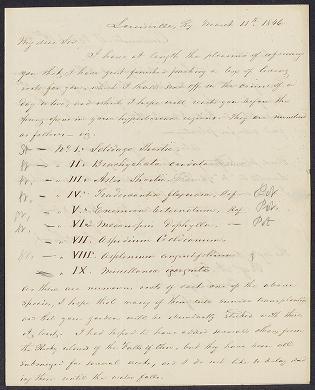 Louisville, Ky March 11th. 1846
My dear Sir
I have at length the pleasure of informing
you that I have just finished packing a box of living
roots for you, which I shall send off in the course of a
day or two, and which I hope will reach you before the
Spring opens in your hyperborean regions. They are numbered
as follows - viz.
No. I. Solidago Shortii.
II. Brachychaeta cordata
III. Aster Shortii.
IV. Tradescantia
V.
VI. diphylla. Pot
VII. Aspidium Goldieanum.
VIII. Asplenium angustifolium
IX. Miscellanea
As there are numerous roots of each one of the above
species, I hope that many of them will survive transplantation
and that your garden will be abundantly stocked with them
I had hoped to have added several others from
the Rocky islands of the Falls of Ohio, but they have been all
submerged for several weeks, and I do not like to delay send-
ing these until the water falls.